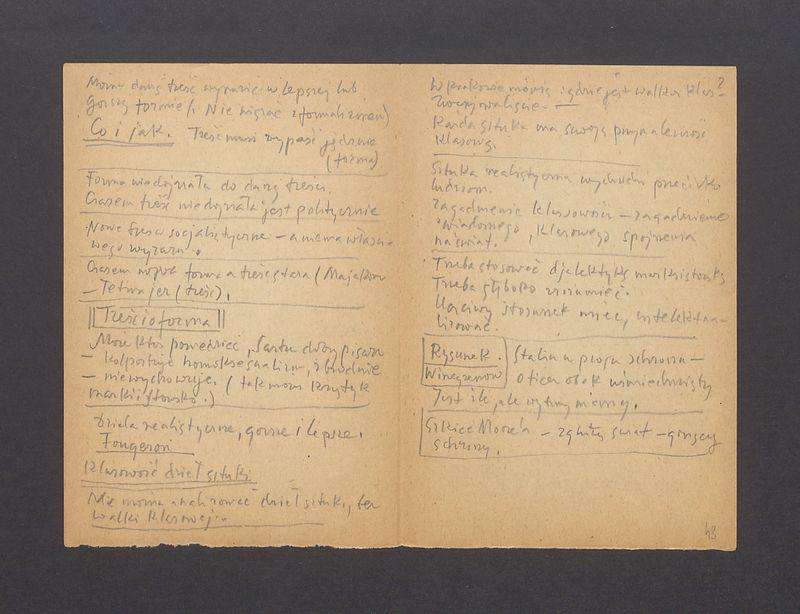 Można daną treść wyrazić w lepszej lub
gorszej formie (. Nie mieszać z formalizmem)
Co i jak. Treść musi wypaść jednak
(forma)
Forma niedojrzała do danej treści.
Czasem treść niedojrzała jest politycznie
Nowe treści socjalistyczne – a nie ma właści-
wego wyrazu.
Czasem nowa forma a treść stara (Majakow
– Tetmajer (treść).
Treść i forma
Może ktoś powiedzieć, Sartre dobry pisarz
– kolportuje homoseksualizm, i zbrodnie
– nie wychowuje. (tak mówi krytyk
marksistowski.)
Dzieła realistyczne, gorsze i lepsze.
Fougeron
Klasowość dzieł sztuki
Nie można analizować dzieł sztuki, bez
walki klasowej.
W Krakowie mówią i gdzie jest walka klas?
Każda sztuka ma swoją przynależność
klasową.
Sztuka realistyczna wychodzi przeciwko
ludziom.
Zagadnienie klasowości – zagadnienie
świadomego, klasowego spojrzenia
na świat.
Trzeba stosować dialektykę marksistowską
Trzeba głęboko zrozumieć.
Uczciwy stosunek mieć, intelektua-
lizować.
Rysunek.
Stalin u progu schronu –
Oficer obok uśmiechnięty
Jest źle, ale wytrwamy
Szkice Moore'a – zgniły świat – ginący
schrony.
48